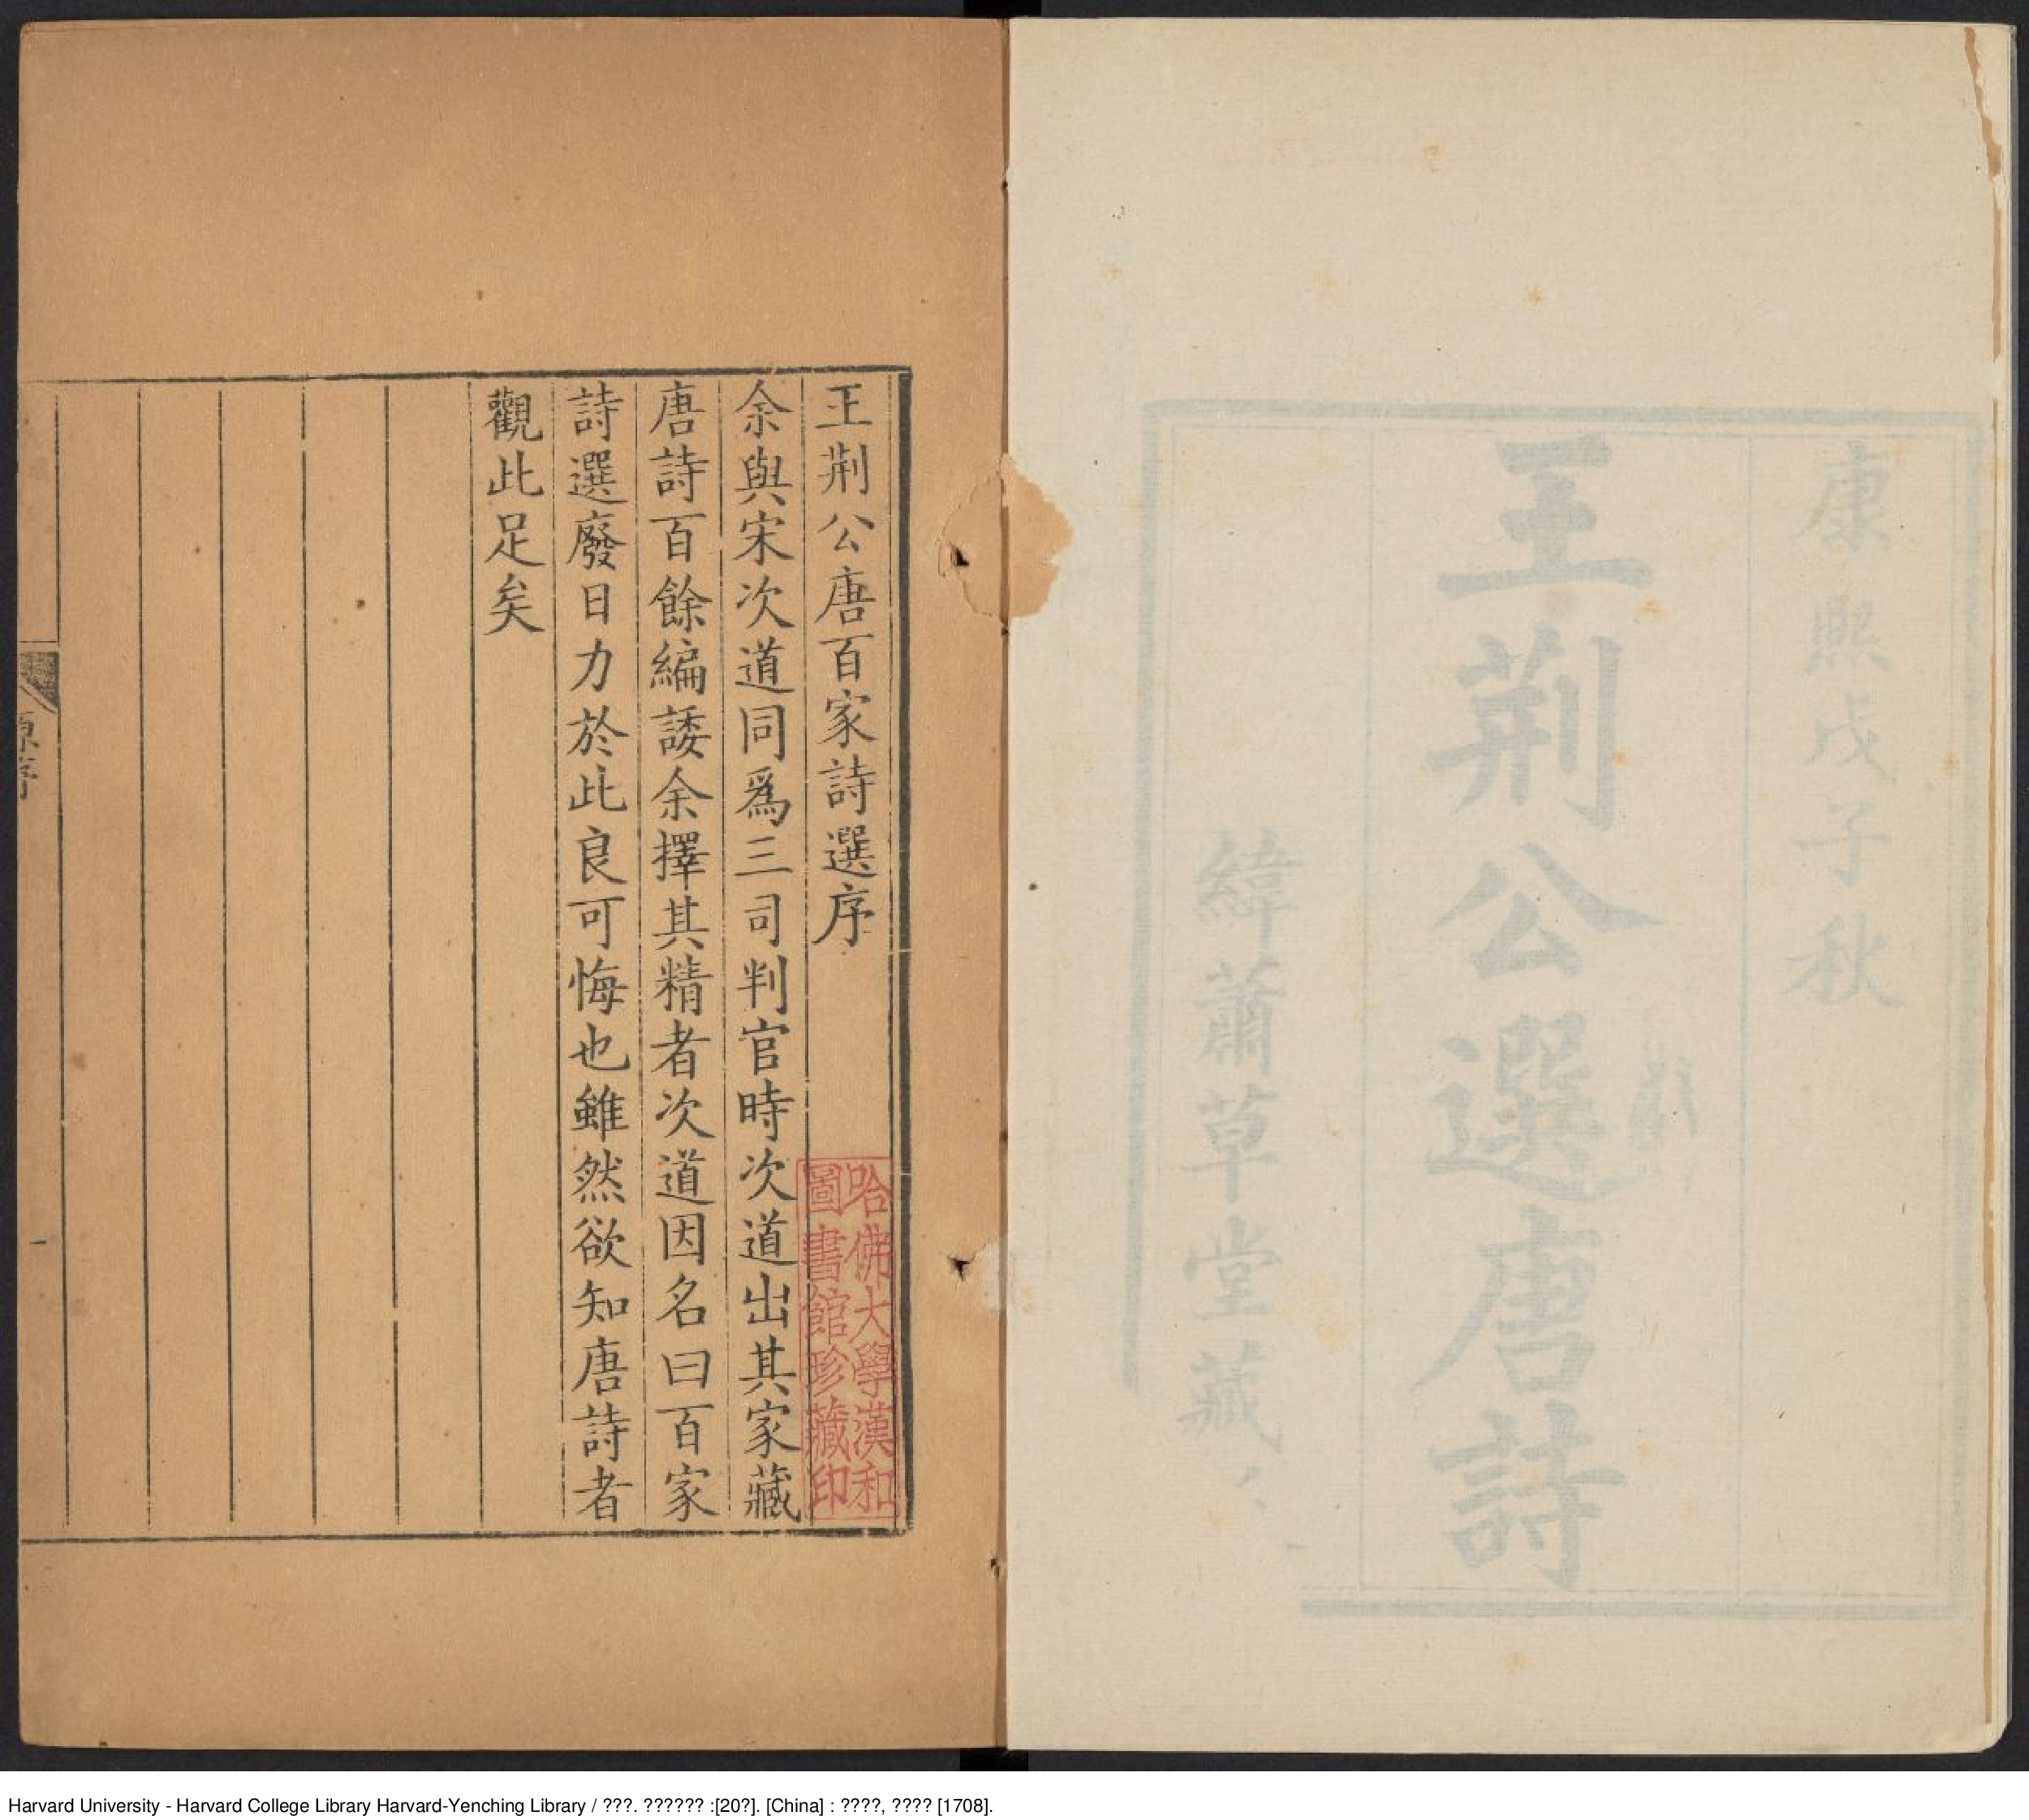 康熙戊子秋
王荆公選唐詩
緯蕭草堂藏
王荆公唐百家詩選序
余與宋次道同爲三司判官時次道出其家藏
唐詩百餘編諉余擇其精者次道因名曰百家
詩選廢日力於此良可悔也雖然欲知唐詩者
觀此足矣
哈佛大學漢和
圖書館珍藏印
原序
一
Harvard University - Harvard College Library Harvard-Yenching Library / ???. ?????? :[20?]. [China] : ????, ???? [1708].